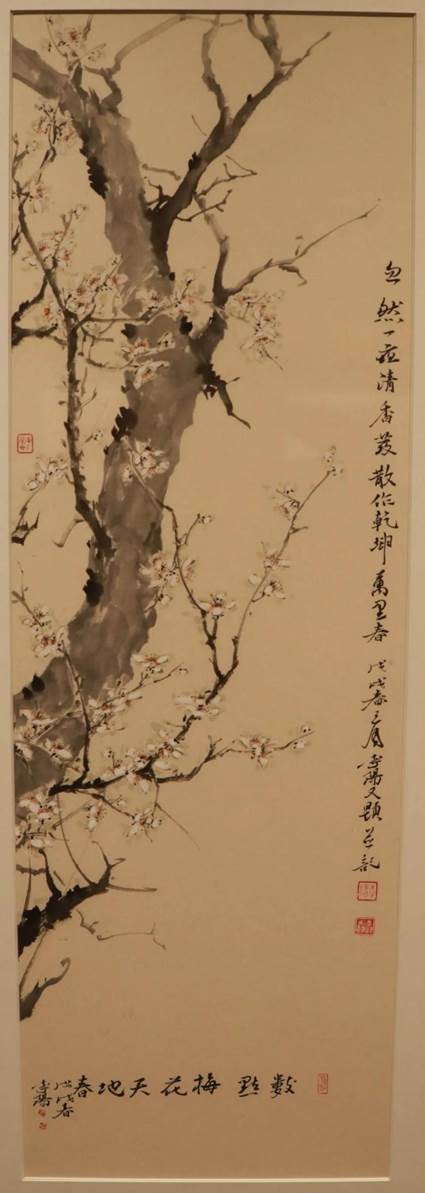 忽然一夜清香發散作乾坤萬里春 戊戌春三月 又題並記
數點梅花天地春
戊戌春